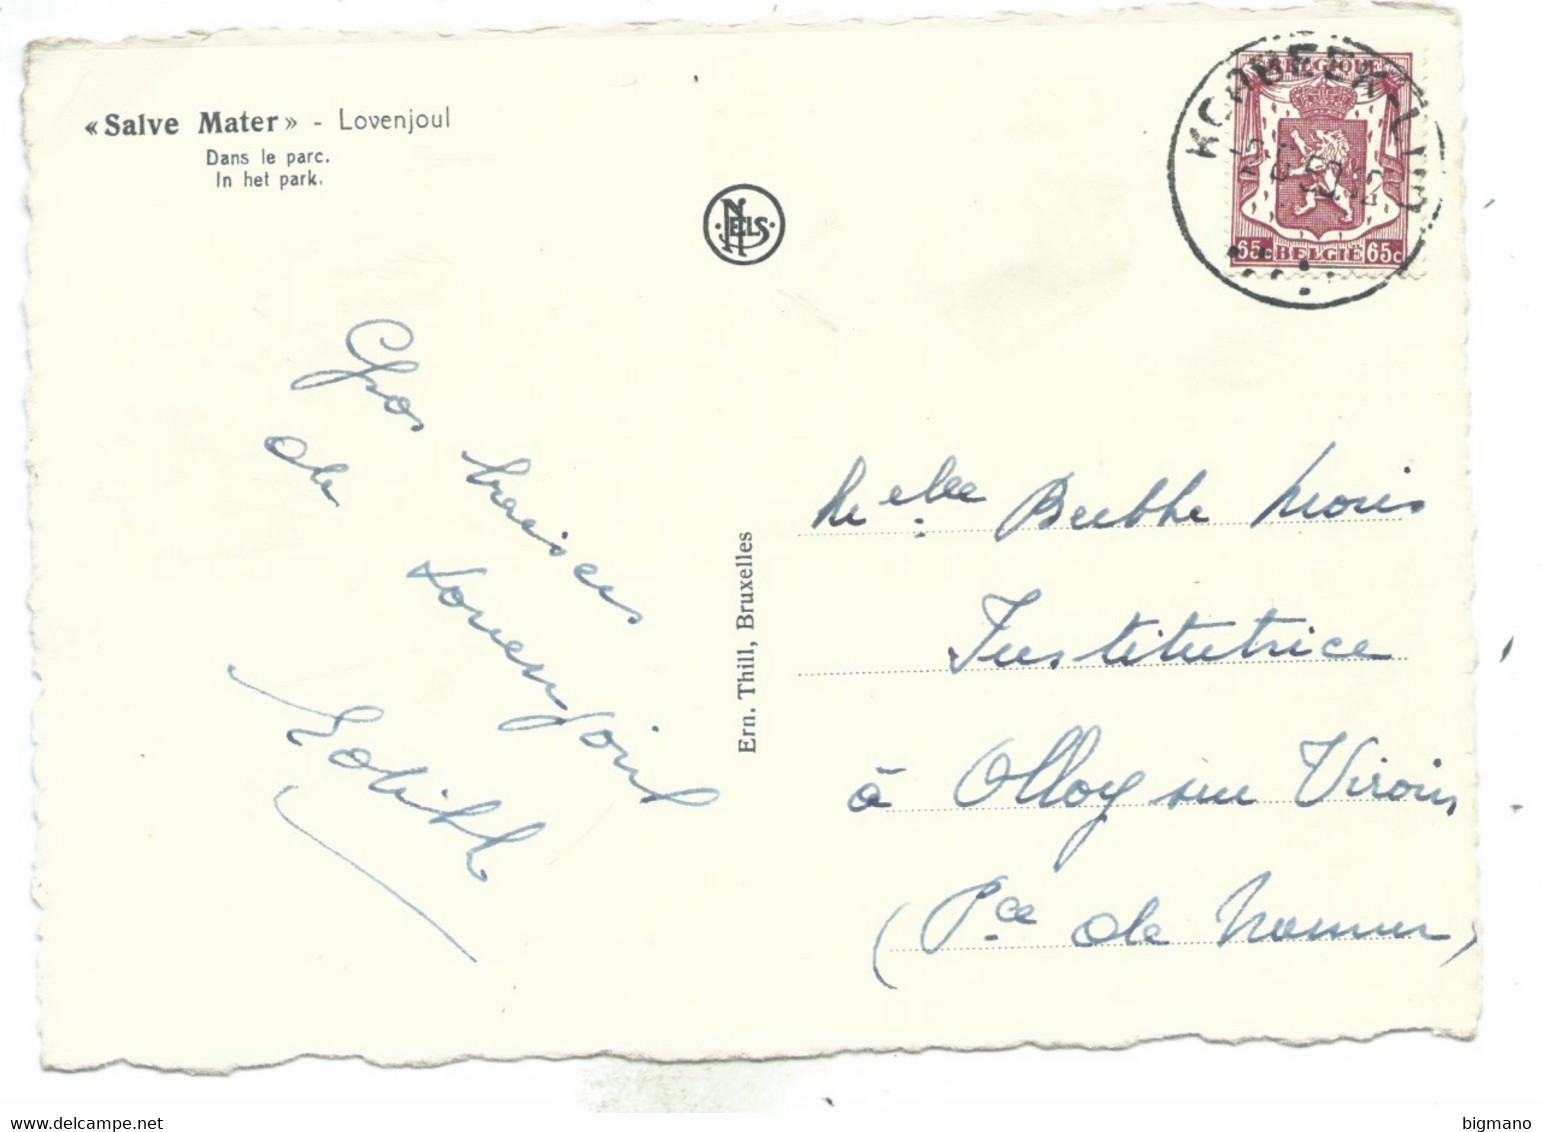 « Salve Mater » - Lovenjoul
Dans le parc.
In het park.
NELS
BELGIQUE
65c BELGIË 65c
KORBEEK-LO
Gros baisers
de
Lovenjoul
Edith
Ern. Thill, Bruxelles
Melle Berthe
Institutrice
à Olloy sur Viroin
(Pce de Namur)
bigmano